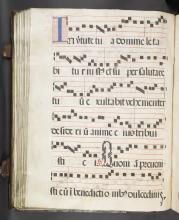 In virtute tu a domine leta
bi tur iustus et su per salutare
tu ū e xultabit vehementer
desideriū anime eius tribu
isti ei Quoniam preueni
sti eū ī benedictionibus dulcedinis